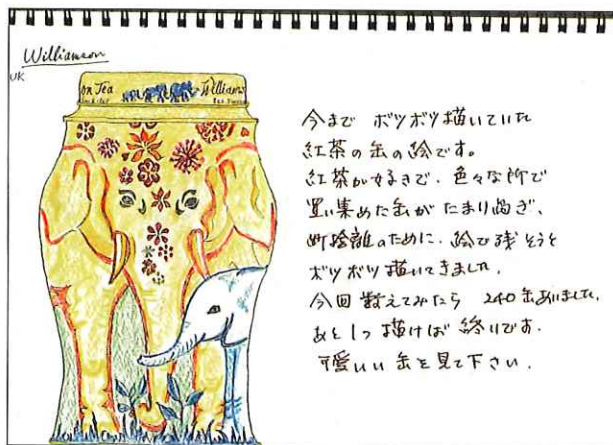 Williamson
UK
on Tea
Williams
今まで ボツボツ描いていた
紅茶の缶の絵です。
紅茶が好きで、色々な所で
買い集めた缶が たまり過ぎ、
断捨離のために、絵で残そうと
ボツボツ描いてきました。
今回数えてみたら 240缶ありました。
あと1つ描けば 終りです。
可愛いい缶を見て下さい。